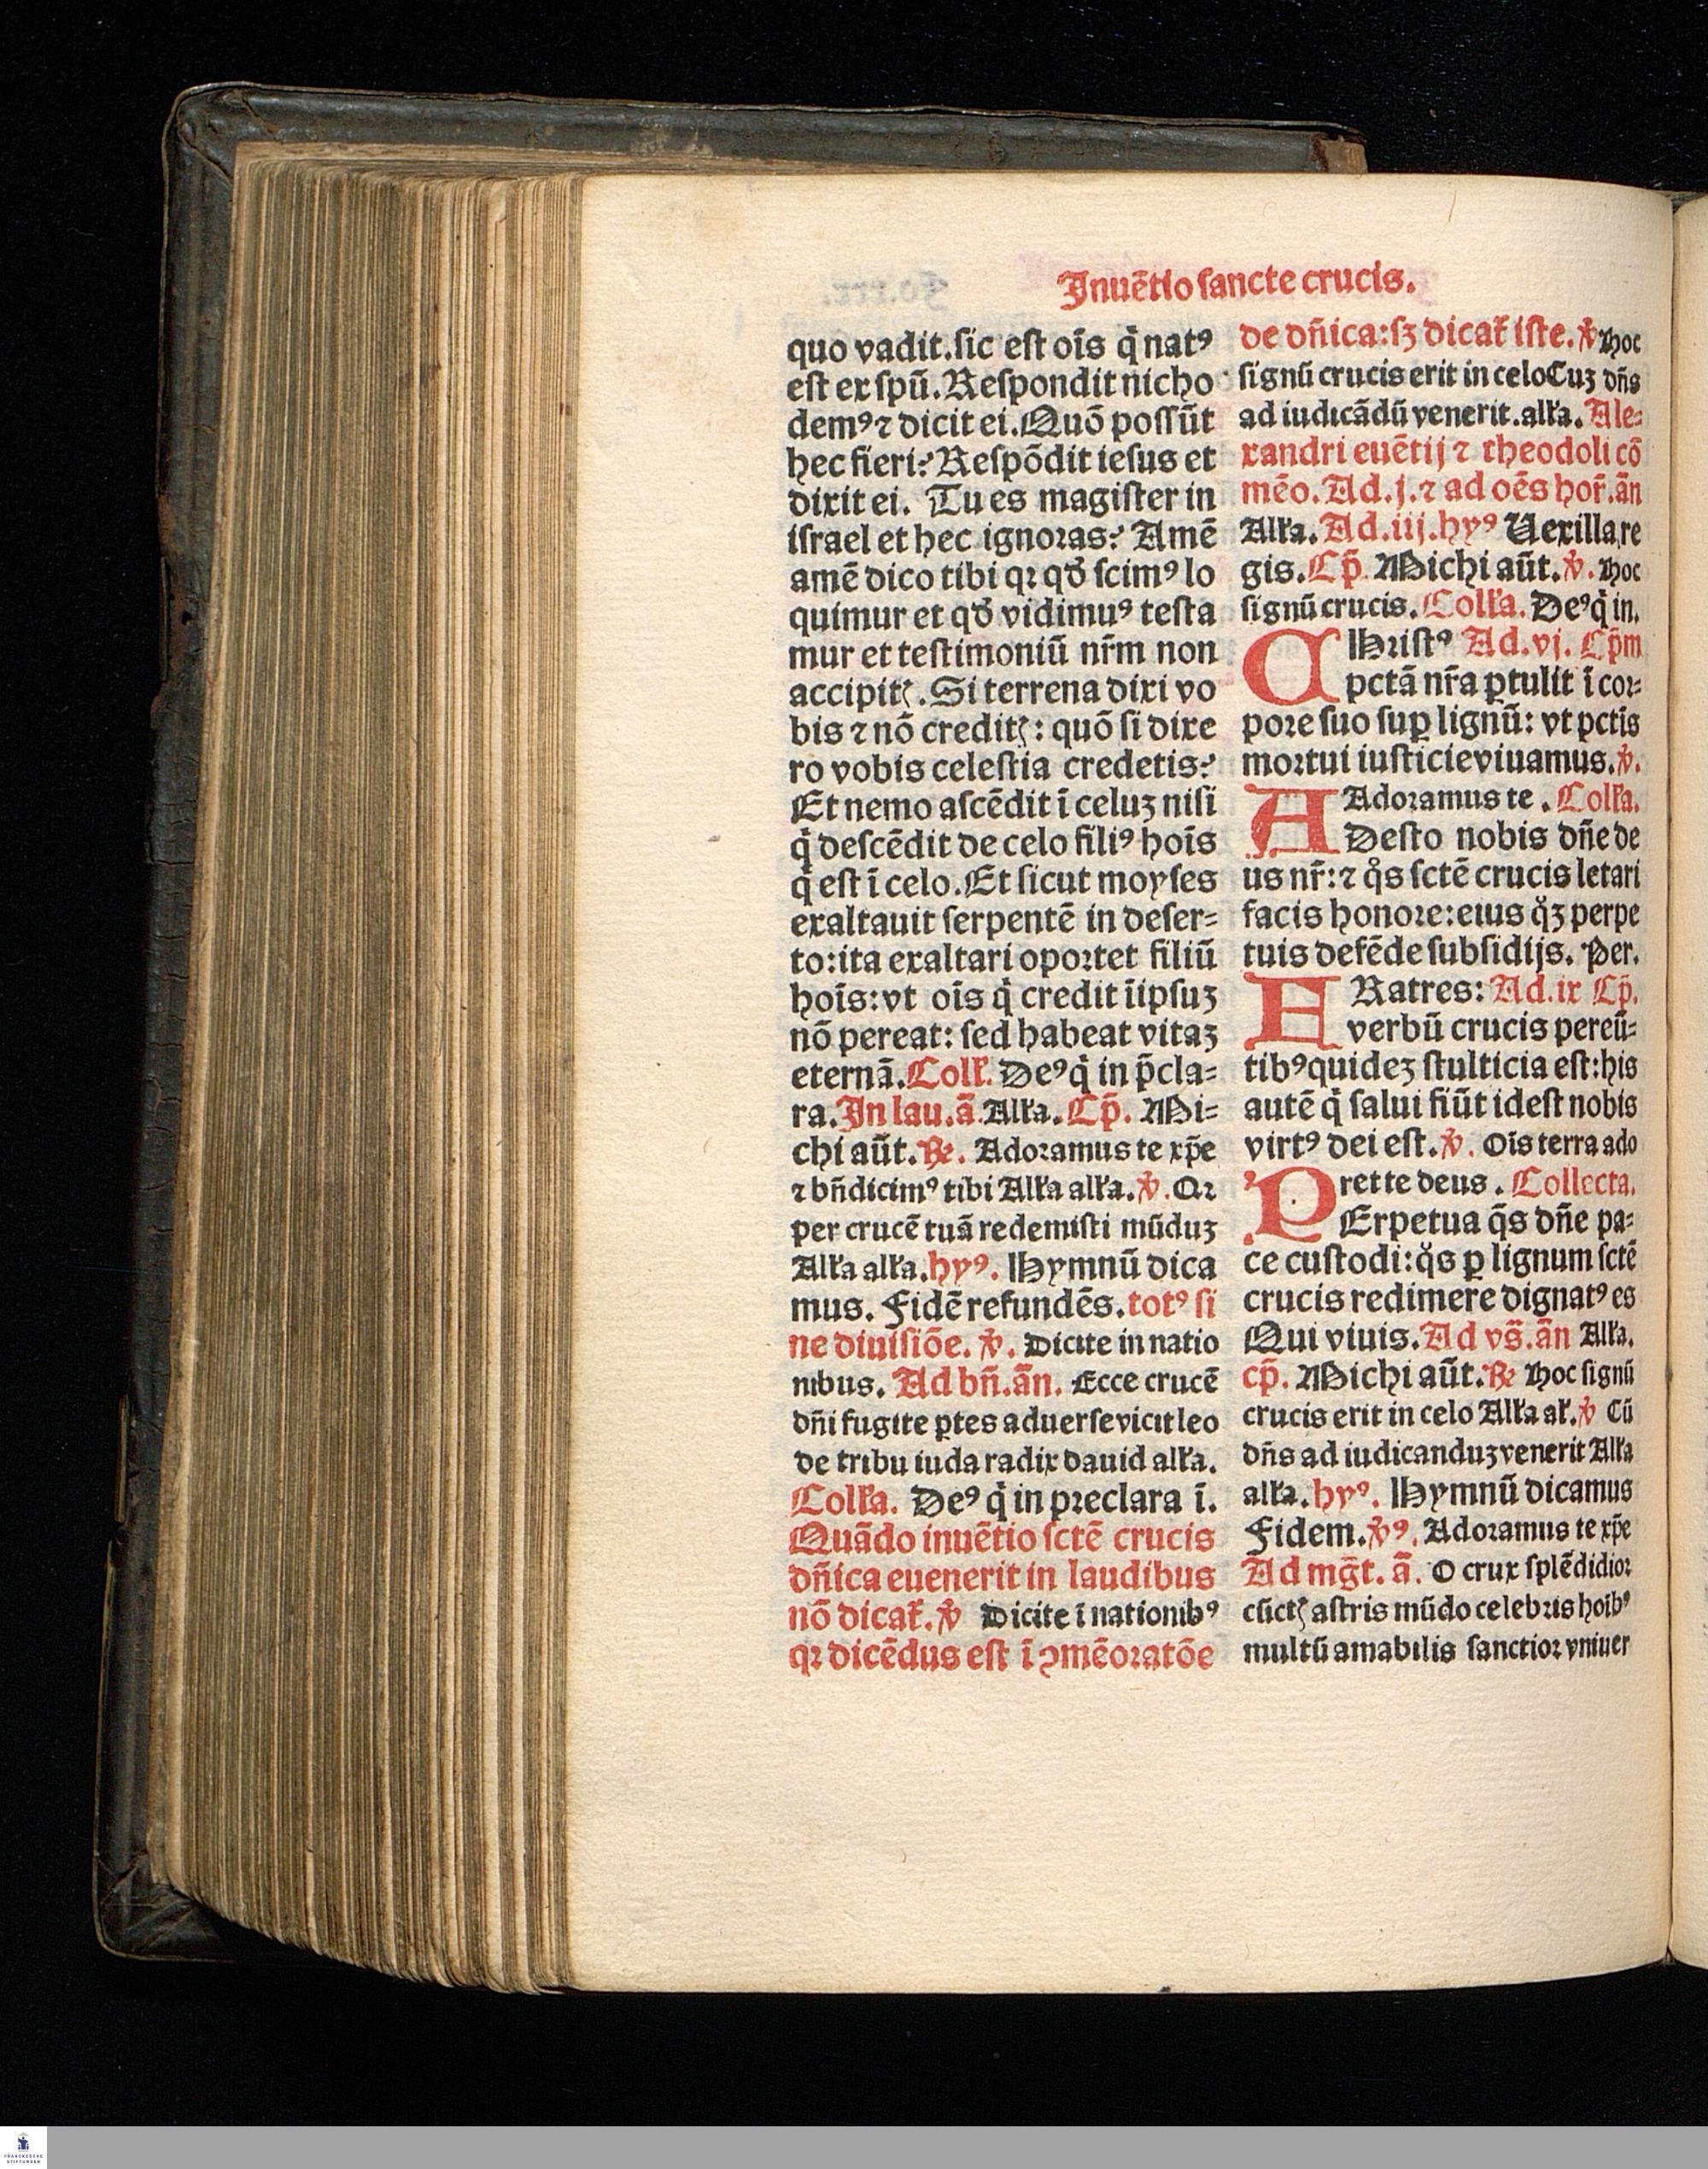 Inuētio sancte crucis.
quo vadit. sic est oīs q̇ natꝰ
est ex spū. Respondit nicho
demꝰ ⁊ dicit ei. Quō possūt
hec fieri? Respōdit iesus et
dixit ei. Tu es magister in
israel et hec ignoras? Amē
amē dico tibi qꝛ qđ scimꝰ lo
quimur et qđ vidimuꝰ testa
mur et testimoniū nr̄m non
accipitꝭ. Si terrena dixi vo
bis ⁊ nō creditꝭ: quō si dixe
ro vobis celestia credetis?
Et nemo ascēdit ī celuꝫ nisi
q̇ descēdit de celo filiꝰ hoīs
q̇ est ī celo. Et sicut moyses
exaltauit serpentē in deser⸗
to: ita exaltari oportet filiū
hoīs: vt oīs q̇ credit īipsuꝫ
nō pereat: sed habeat vitaꝫ
eternā. Colł. Deꝰ q̇ in p̄cla⸗
ra. In lau. ā. Alła. Cp̄. Mi⸗
chi aūt. ℞. Adoramus te xp̄e
⁊ bn̄dicimꝰ tibi Alła alła. ℣. Qꝛ
per crucē tuā redemisti mūduꝫ
Alła alła. hyꝰ. Hymnū dica
mus. Fidē refundēs. totꝰ si
ne diuisiōe. ℣. Dicite in natio
nibus. Ad bn̄. ān. Ecce crucē
dn̄i fugite ꝑtes aduerse vicit leo
de tribu iuda radix dauid alła.
Colła. Deꝰ q̇ in preclara ī.
Quādo inuētio sctē crucis
dn̄ica euenerit in laudibus
nō dicať. ℣ Dicite ī nationibꝰ
qꝛ dicēdus est ī ꝯmēoratōe
de dn̄ica: sꝫ dicať iste. ℣ Hoc
signū crucis erit in celo Cuꝫ dn̄s
ad iudicādū venerit. alła. Ale⸗
xandri euētij ⁊ theodoli cō
mēo. Ad. j. ⁊ ad oēs hoř. ān
Alła. Ad. iij. hyꝰ Uexilla re
gis. Cp̄. Michi aūt. ℣. Hoc
signū crucis. Colła. Deꝰ q̇ in.
CHristꝰ Ad. vj. Cp̄m
pctā nr̄a ꝑtulit ī cor⸗
pore suo suꝑ lignū: vt pctīs
mortui iusticie viuamus. ℣.
Adoramus te. Colła.
ADesto nobis dn̄e de
us nr̄: ⁊ q̊s sctē crucis letari
facis honore: eius q̊ꝫ perpe
tuis defēde subsidijs. Per.
FRatres: Ad. ix Cp̄.
verbū crucis pereū⸗
tibꝰ quideꝫ stulticia est: his
autē q̇ salui fiūt idest nobis
virtꝰ dei est. ℣. Oīs terra ado
ret te deus. Collecta.
PErpetua q̄s dn̄e pa⸗
ce custodi: q̊s ꝑ lignum sctē
crucis redimere dignatꝰ es
Qui viuis. Ad vs̄. ān Alła.
cp̄. Michi aūt. ℞ Hoc signū
crucis erit in celo Alła ał. ℣ Cū
dn̄s ad iudicanduꝫ venerit Alła
alła. hyꝰ. Hymnū dicamus
Fidem. ℣ꝰ. Adoramus te xp̄e
Ad mḡt. ā. O crux splēdidior
cūctꝭ astris mūdo celebris hoībꝰ
multū amabilis sanctior vniuer
FRANCKESCHE
STIFTUNGEN